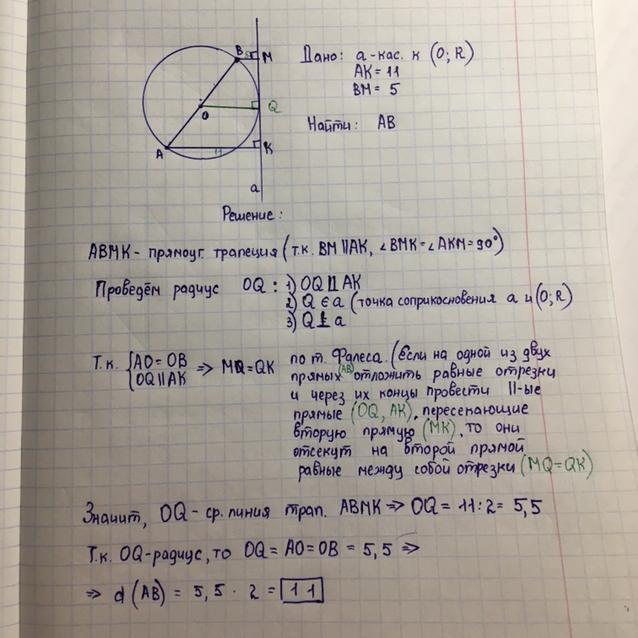 B
5
M
Дано: a-кас. к (O; R)
AK = 11
BM = 5
Q
O
Найти: AB
A
11
K
a
Решение:
ABMK - прямоуг. трапеция (т.к. BM ∥ AK, ∠BMK = ∠AKM = 90°)
Проведём радиус OQ: 1) OQ ∥ AK
2) Q ∈ a (точка соприкосновения a и (O; R)
3) Q ⊥ a
Т.к. { AO = OB
OQ ∥ AK ⇒ MQ = QK по т. Фалеса. (Если на одной из двух
прямых (AB) отложить равные отрезки
и через их концы провести ||-ые
прямые (OQ, AK), пересекающие
вторую прямую (MK), то они
отсекут на второй прямой
равные между собой отрезки (MQ = QK)
Значит, OQ - ср. линия трап. ABMK ⇒ OQ = 11:2 = 5,5
Т.к. OQ - радиус, то OQ = AO = OB = 5,5 ⇒
⇒ d (AB) = 5,5 · 2 = 11